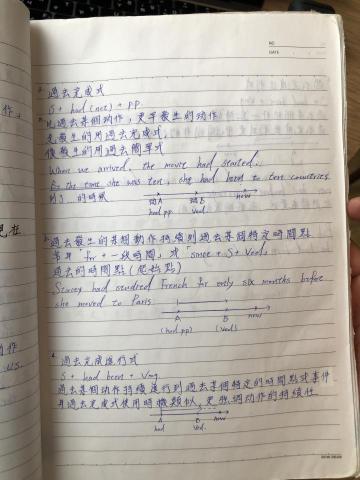 NO.
DATE
過去完成式
S + had (not) + p.p.
比過去某個動作,更早發生的動作
先發生的用過去完成式,
後發生的用過去簡單式
When we arrived, the movie had started.
By the time she was ten, she had been to ten countries
動A 動B now
had p.p. Ved.
過去發生的某個動作持續到過去某個特定時間點
常用 "for + 一段時間" 或 "since + S + Ved,
過去的時間點 (起始點)
Stacey had studied French for only six months before
she moved to Paris
A B now
(had pp) (Ved)
過去完成進行式
S + had been + Ving
過去某個動作持續進行到過去某個特定的時間點或事件
與過去完成式使用時機類似,更強調動作的持續性
A B now
had Ved.